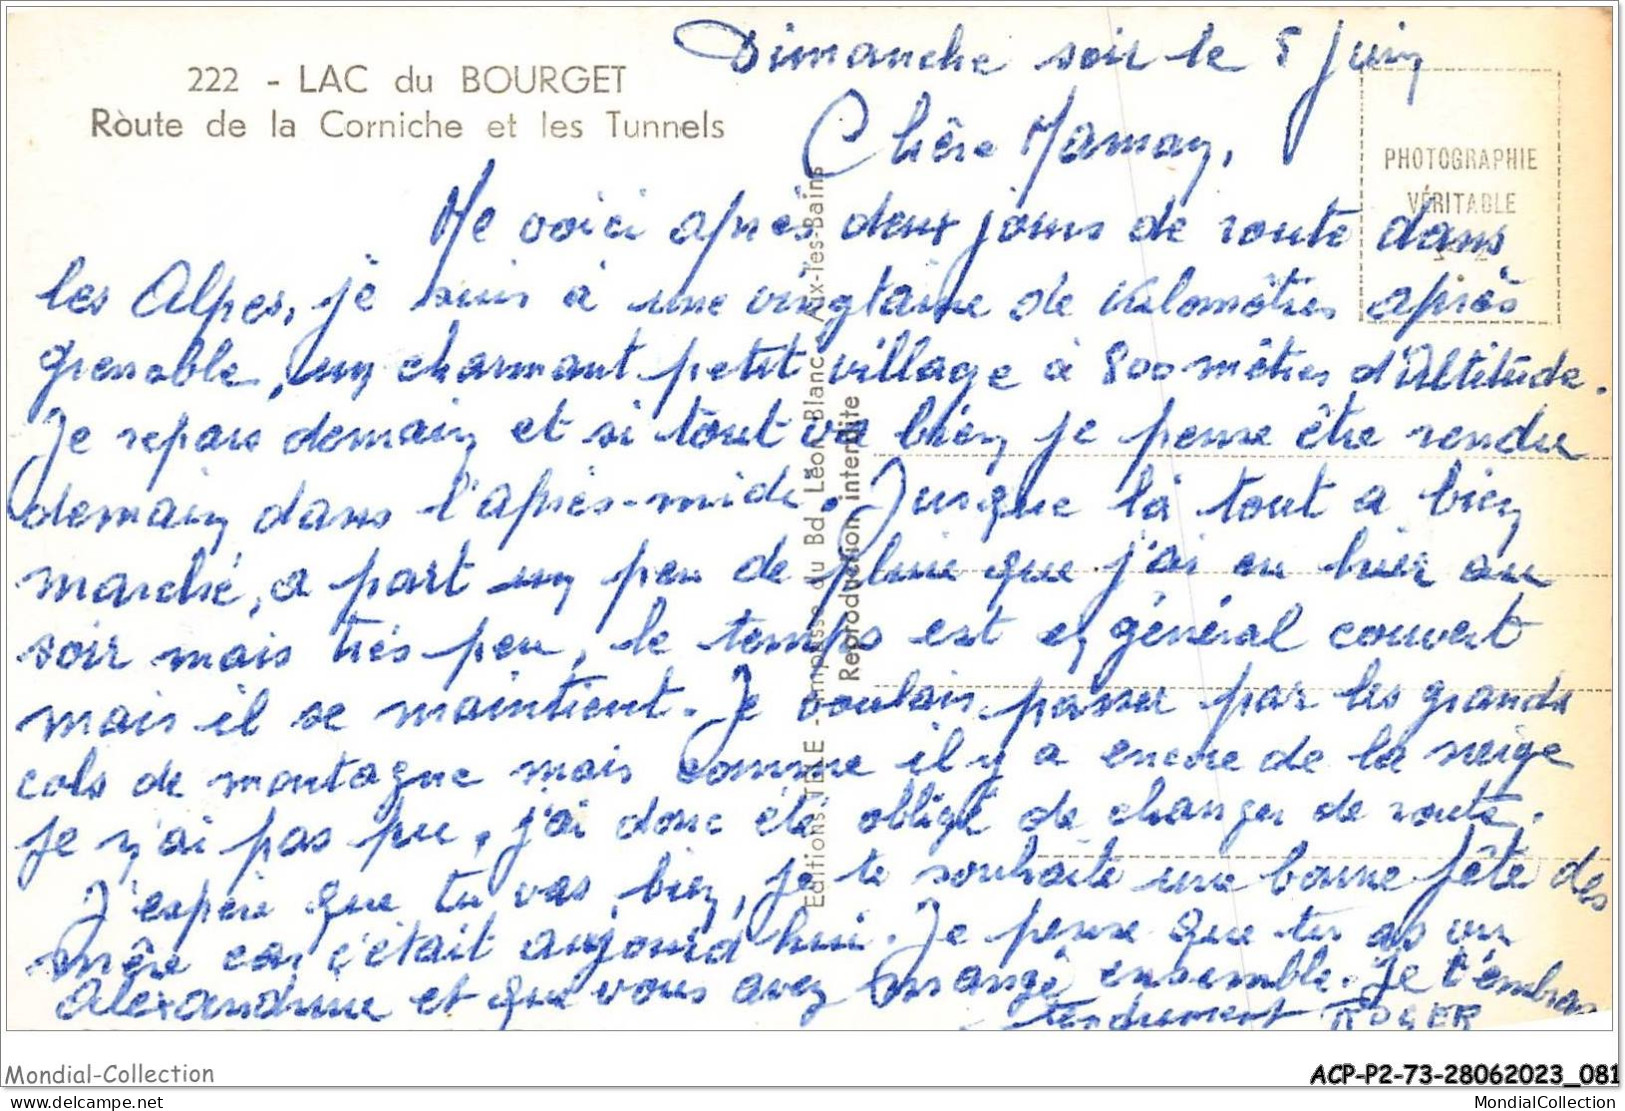 222 - LAC du BOURGET
Route de la Corniche et les Tunnels
Dimanche soir le 5 Juin
Chère Maman,
PHOTOGRAPHIE
VÉRITABLE
Me voici après deux jours de route dans
les Alpes, je suis à une vingtaine de kilomètres après
grenoble, un charmant petit village à 800 mètres d'Altitude.
Je repars demain et si tout va bien je pense être rendu
demain dans l'après-midi. Jusque là tout a bien
marché, a part un peu de pluie que j'ai eu hier au
soir mais très peu, le temps est en général couvert
mais il se maintient. Je voulais passer par les grands
cols de montagne mais comme il y a encore de la neige
je n'ai pas pu, j'ai donc été obligé de changer de route.
J'espère que tu vas bien, je te souhaite une bonne fête des
mère car c'était aujourd'hui. Je pense que tu as vu
Alexandrine et que vous avez mangé ensemble. Je t'embras
tendrement ROGER
Editions TELE - Impasse du Bd Léon-Blanc Aix-les-Bains
Reproduction interdite
Mondial-Collection
ACP-P2-73-28062023_081
delcampe.net
MondialCollection